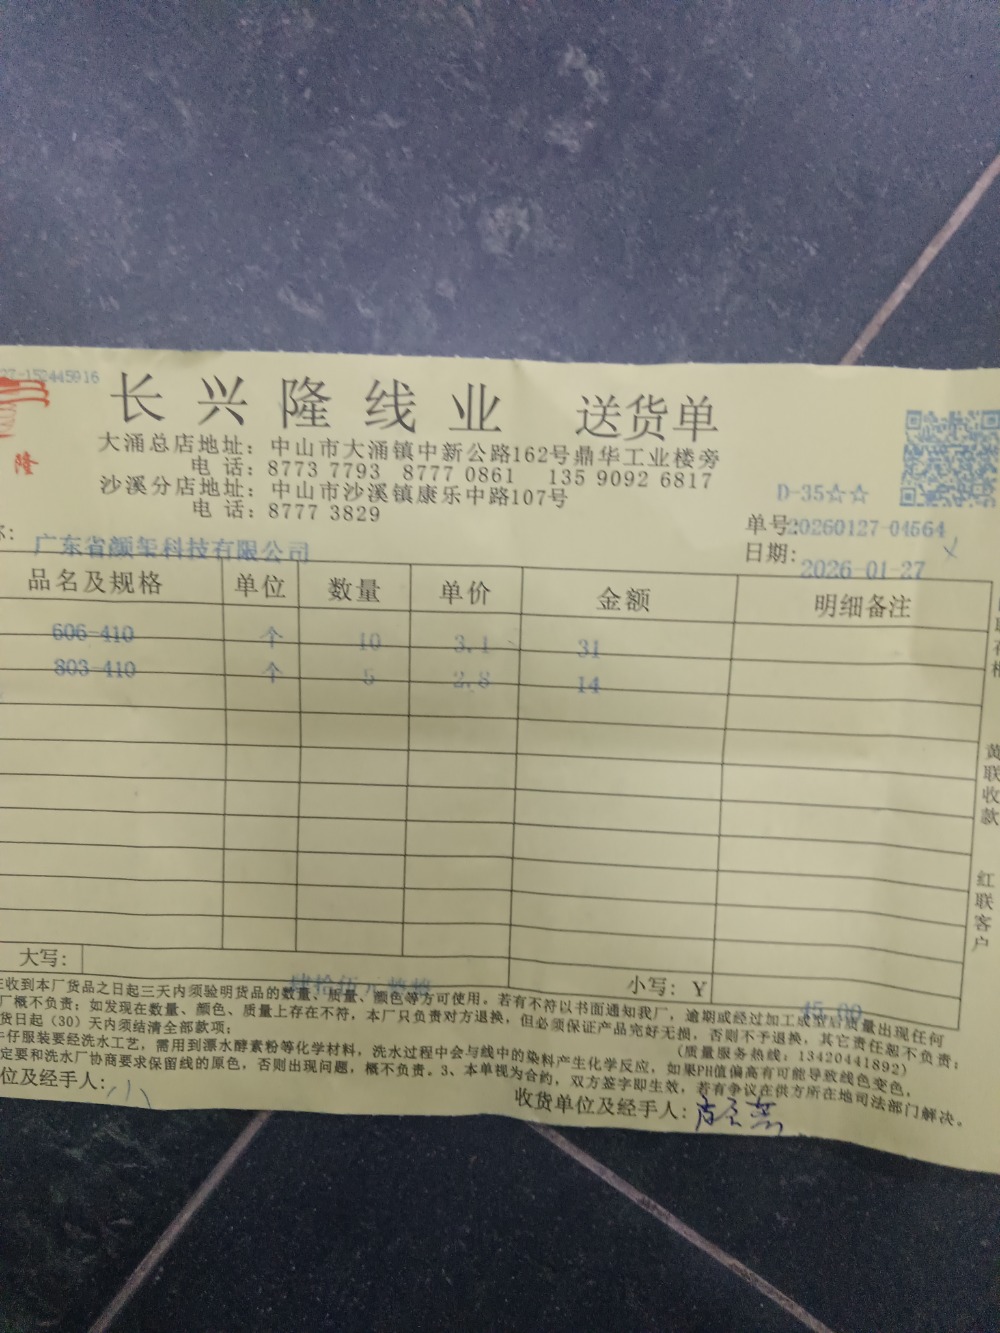 27-152445916
长兴隆线业 送货单
隆
大涌总店地址：中山市大涌镇中新公路162号鼎华工业楼旁
电话：8773 7793 8777 0861 135 9092 6817
沙溪分店地址：中山市沙溪镇康乐中路107号
电话：8777 3829
D-35☆☆
单号:20260127-04564
称：广东省颜玺科技有限公司
日期: 2026-01-27
品名及规格 单位 数量 单价 金额 明细备注
606-410 个 10 3.1 31
803-410 个 5 2.8 14
黄联收款
红联客户
大写: 肆拾伍元
小写：Y 45.00
在收到本厂货品之日起三天内须验明货品的数量、质量、颜色等方可使用。若有不符以书面通知我厂，逾期或经过加工成型后质量出现任何
厂概不负责；如发现在数量、颜色、质量上存在不符，本厂只负责对方退换，但必须保证产品完好无损，否则不予退换，其它责任恕不负责；
货日起（30）天内须结清全部款项；
（质量服务热线：13420441892）
牛仔服装要经洗水工艺，需用到漂水酵素粉等化学材料，洗水过程中会与线中的染料产生化学反应，如果PH值偏高有可能导致线色变色，
定要和洗水厂协商要求保留线的原色，否则出现问题，概不负责。3、本单视为合约，双方签字即生效，若有争议在供方所在地司法部门解决。
位及经手人: 小
收货单位及经手人: